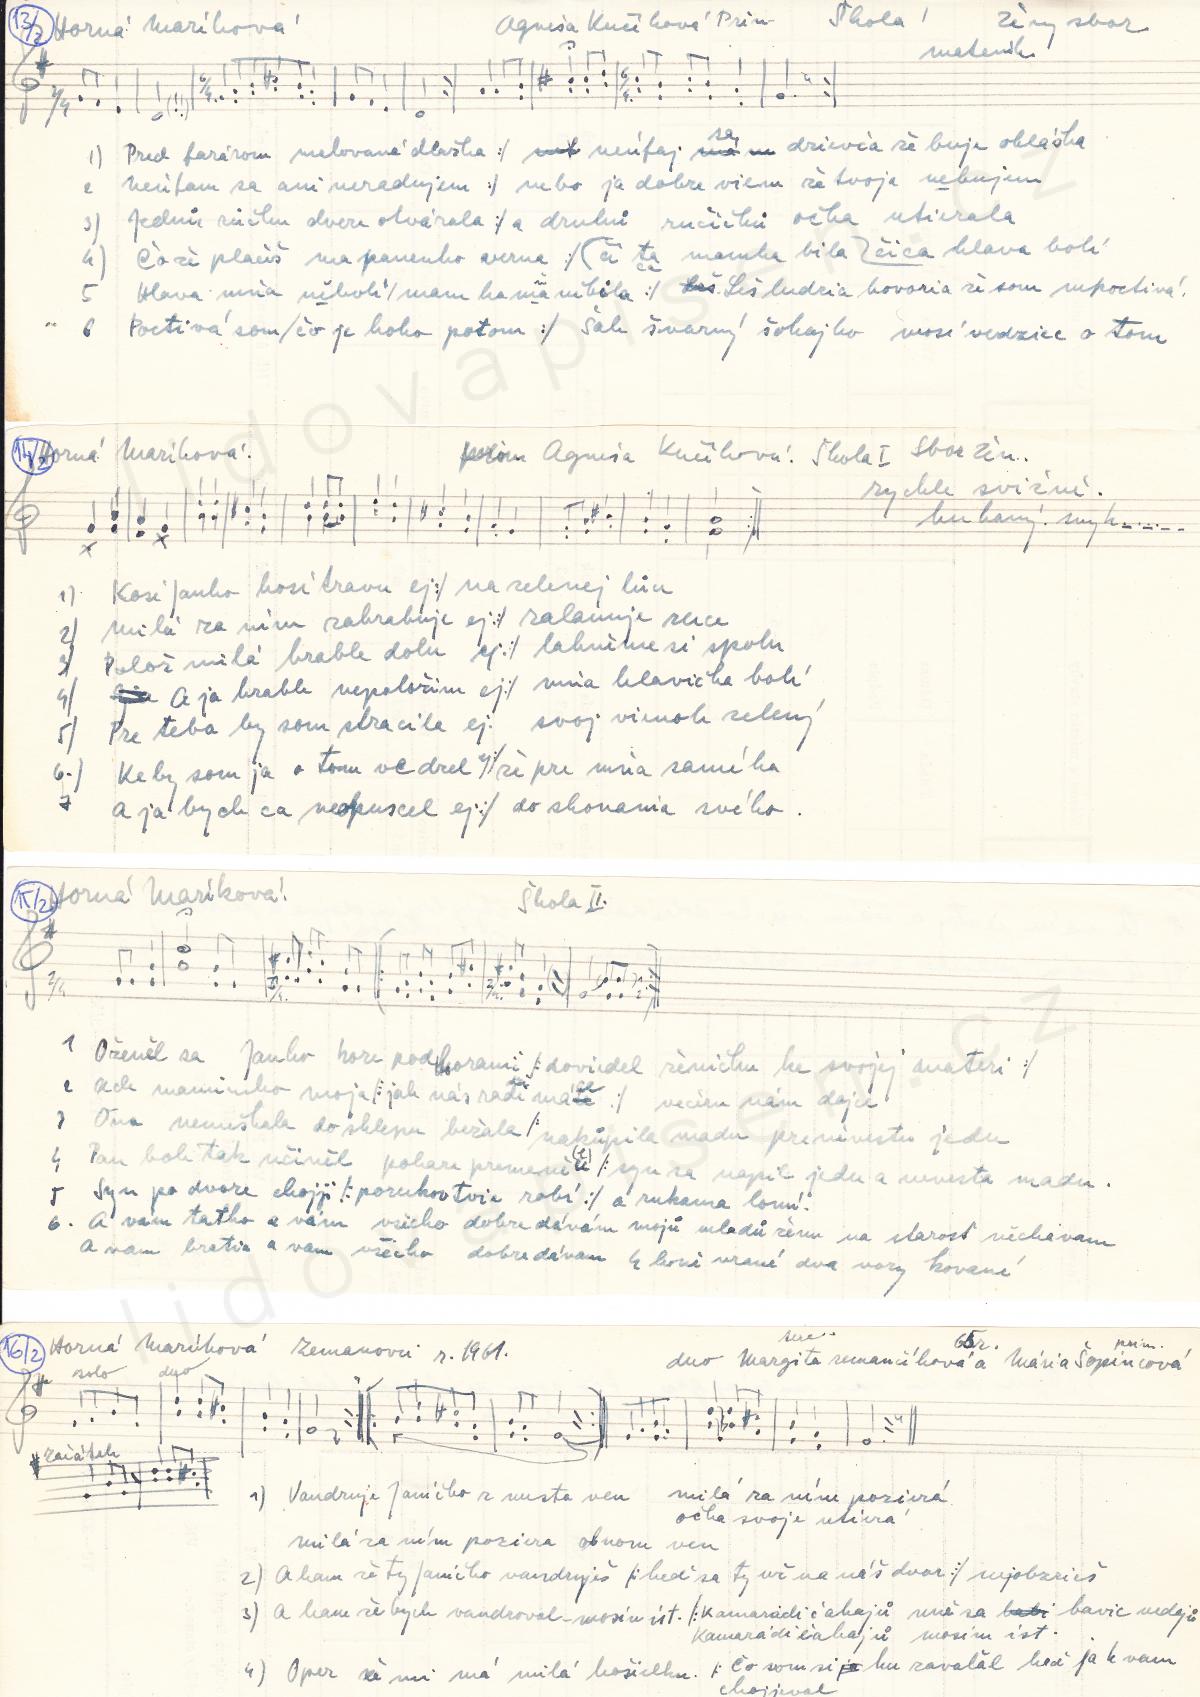 13/2 Horná Maríková Agneša Kučíková Prim Škola I ženy sbor
matenik
2/4
1) Pred farárom malovaná dlaška :/ neúfaj sa dzievča že buje ohláška
2 Neúfam sa ani neradujem :/ nebo ja dobre viem že tvoja nebujem
3) Jednú rúčku dvere otvárala :/ a druhú ručičkú očka utierala
4) Čo že plačeš ma panenko verna :/ (či ta mamka bila) čica hlava bolí
5 Hlava mňa neboli / mamka ma nibila :/ Leš ludzia hovoria že som nepoctivá
6 Poctivá som / čo je koho potom :/ Šak švarný šohajko mosí vedziec o tom
14/2 Horná Maríková. prim Agneša Kučíková. Škola I Sbor žen.
rychle svižně.
1) Kosí Janko kosí travu ej :/ na zelenej lúcu
2) milá za ním zahrabuje ej :/ zalamuje ruce
3) Polož milá hrable dolu ej :/ lahnime si spolu
4) A ja hrable nepoložím ej :/ mňa hlavička bolí
5) Pre teba by som stracila ej. svoj vienok zelený
6.) Keby som ja o tom vedzel ej :/ že pre mňa samého
7 A ja bych ca neopuscel ej :/ do skonania svého.
15/2 Horná Maríková. Škola II.
2/4
1 Oženěl sa Janko hore pod horami /: dovidel ženičku ke svojej materi :/
2 Ach maminko moja /: jak nás radi máce :/ večeru nám dajce
3 Ona nemeškala do sklepu bežala /: nakúpila madu pre nevestu jedu
4 Pan boh tak učiněl pohare premeněl /: syn sa napil jedu a nevesta madu.
5 Syn po dvore chojí /: porukovtvie robí :/ a rukama lomí.
6. A vám tatko a vám všecko dobre dávám mojú mladú ženu na starosť nechávam
A vam bratia a vam všecko dobre dávam 4 koně vrané dva vozy kované
16/2 Horná Maríková Zemanovci r. 1961. duo Margita Zemančíková a Mária Šopincová prim.
solo duo
začátek
1) Vandruje Janíčko z mesta ven milá za ním pozierá
očka svoje utierá
milá za ním poziera oknom ven
2) A kam že ty Janíčko vandruješ /: kedˇ sa ty už na náš dvor :/ nejobzrieš
3) A kam že bych vandroval – mosím ísť. /: Kamarádi čahajú mně sa bavic nedajú
Kamarádi čahajú mosím ísť.
4) Oper že mi má milá košielku. /: Čo som si ju zavalal kedˇ ja k vam
chojieval